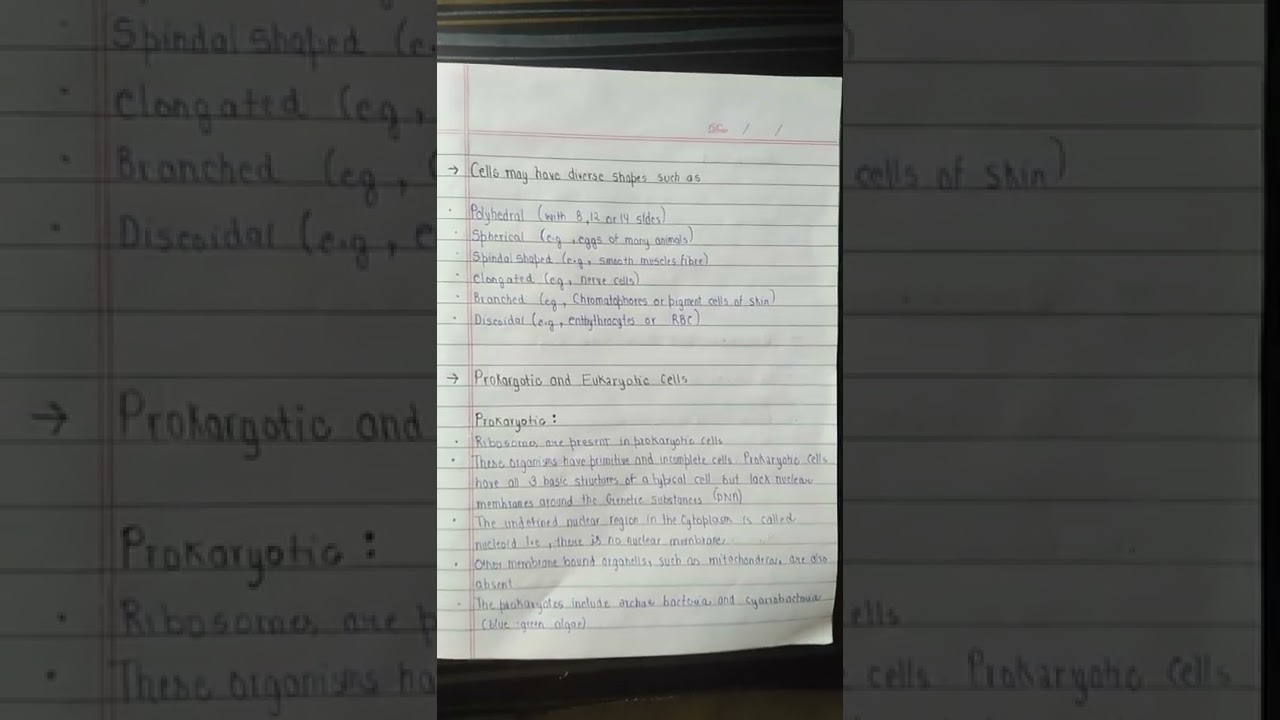 / /
→ Cells may have diverse shapes such as
· Polyhedral (with 8,12 or 14 sides)
· Spherical (e.g., eggs of many animals)
· Spindal shaped (e.g., smooth muscles fibre)
· Clongated (eg, nerve cells)
· Branched (eg, Chromatophores or pigment cells of skin)
· Discoidal (e.g, enthythrocytes or RBC)
→ Prokargotic and Eukaryotic Cells
Prokaryotic:
· Ribosomes are present in prokaryotic cells
· These organisms have primitive and incomplete cells. Prokaryotic cells
have all 3 basic structures of a typical cell but lack nuclear
membranes around the Genetic Substances (DNA)
· The undefined nuclear region in the Cytoplasm is called
nucleoid i.e, there is no nuclear membrane.
· Other membrane bound organells, such as mitochondria, are also
absent
· The prokaryotes include archae bacteria and cyanobacteria
(blue-green algae)